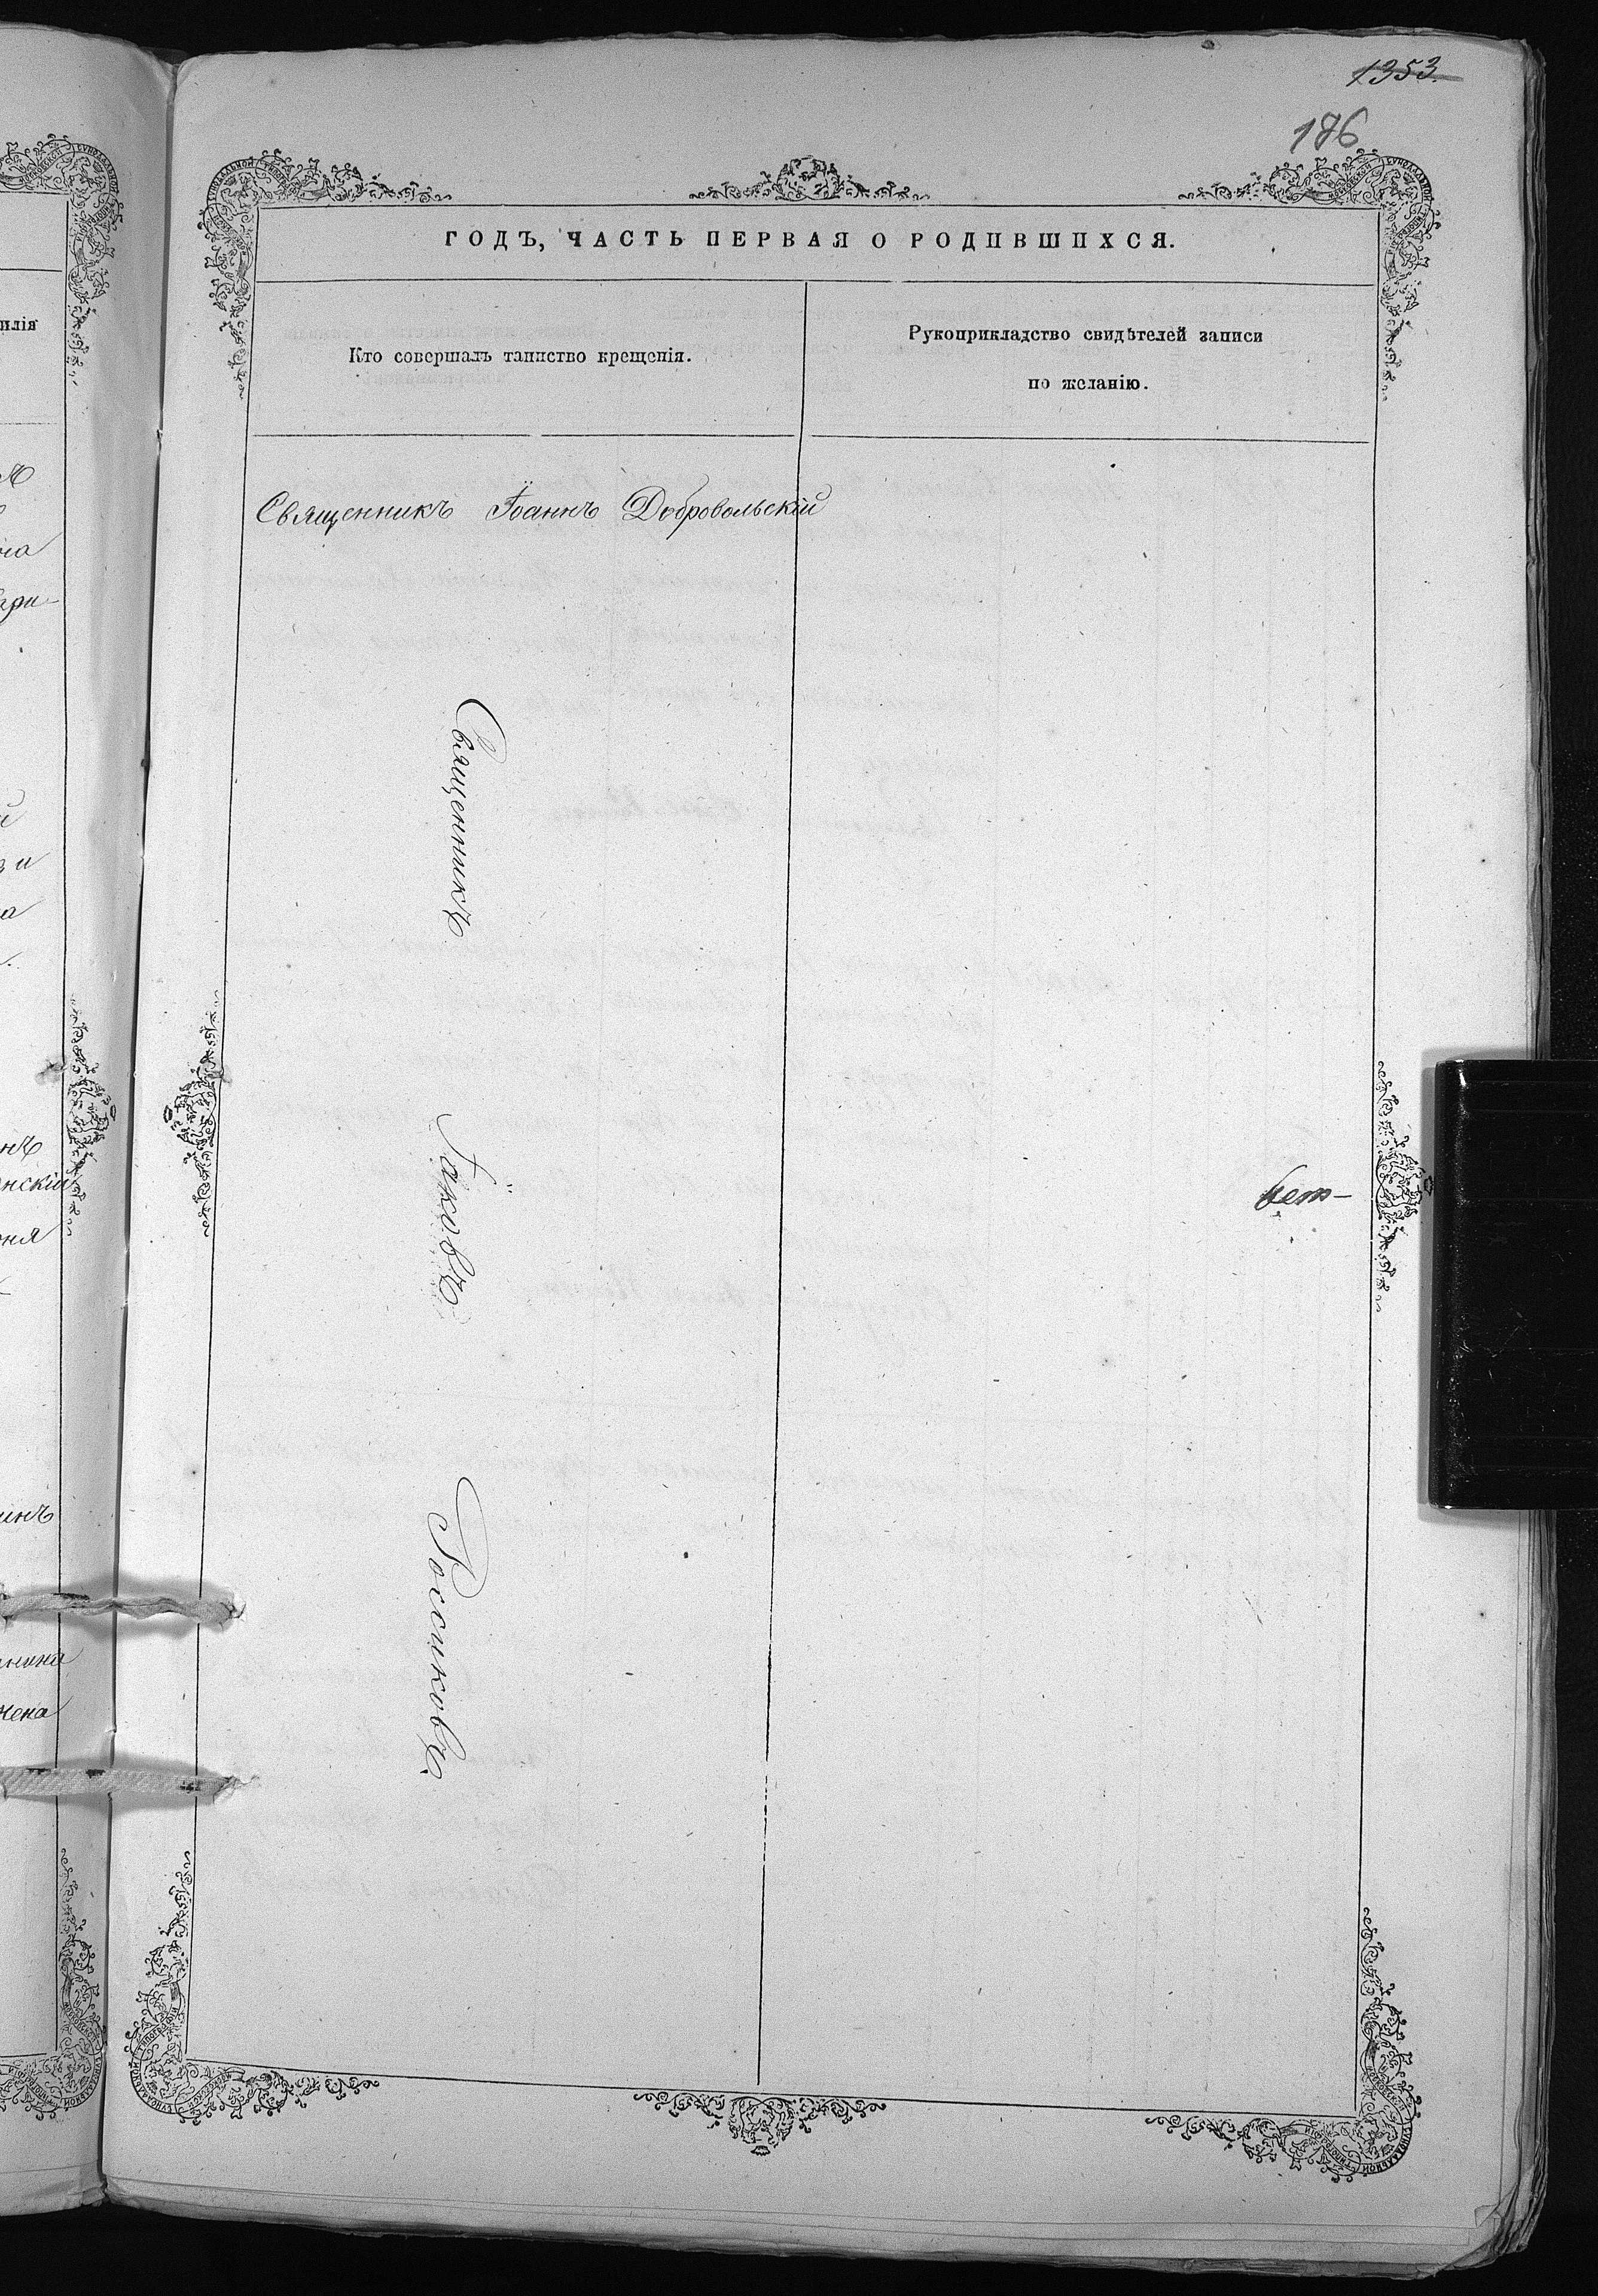 1353.
186
ГОДЪ, ЧАСТЬ ПЕРВАЯ О РОДИВШИХСЯ.
Кто совершалъ таинство крещенія.
Рукоприкладство свидѣтелей записи
по желанію.
Священникъ Іоаннъ Добровольскій
Священникъ Іаковъ Росликовъ.
илія
на
нъ
нскій
ня
инъ
нина
жена